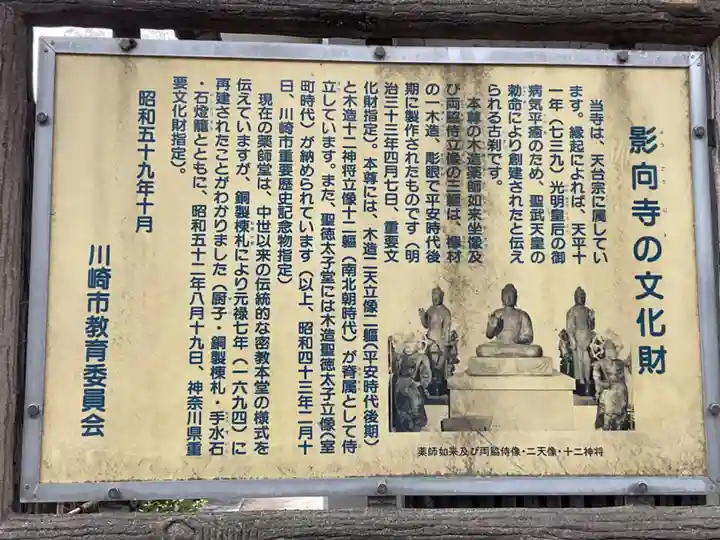 影向寺の文化財
ようごうじ
当寺は、天台宗に属してい
ます。縁起によれば、天平十
一年（七三九）光明皇后の御
病気平癒のため、聖武天皇の
勅命により創建されたと伝え
られる古刹です。
本尊の木造薬師如来坐像及
び両脇侍立像の三軀は、欅材
の一木造、彫眼で平安時代後
期に製作されたものです（明
治三十三年四月七日、重要文
化財指定）。本尊には、木造二天立像二軀（平安時代後期）
と木造十二神将立像十二軀（南北朝時代）が眷属として侍
立しています。また、聖徳太子堂には木造聖徳太子立像（室
町時代）が納められています（以上、昭和四十三年二月十
日、川崎市重要歴史記念物指定）
現在の薬師堂は、中世以来の伝統的な密教本堂の様式を
伝えていますが、銅製棟札により元禄七年（一六九四）に
再建されたことがわかりました（厨子・銅製棟札・手水石
・石燈籠とともに、昭和五十二年八月十九日、神奈川県重
要文化財指定）。
昭和五十九年十月
川崎市教育委員会
薬師如来及び両脇侍像・二天像・十二神将